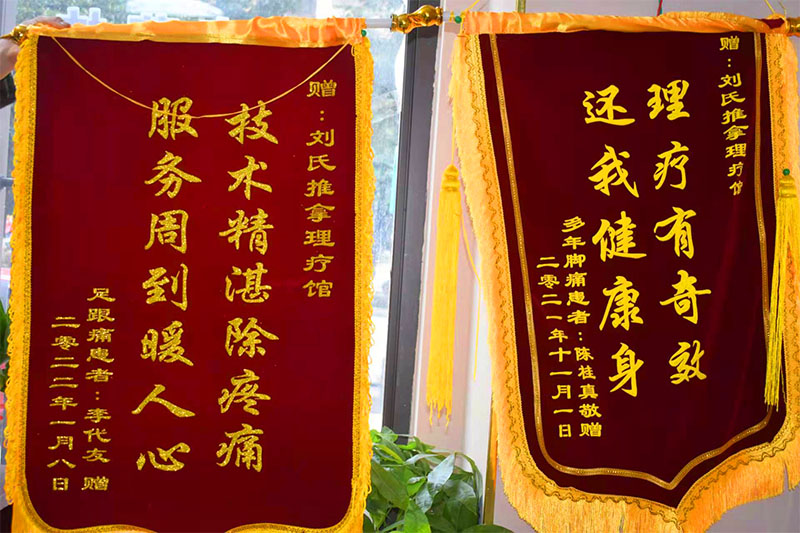 赠：刘氏推拿理疗馆
技术精湛除疼痛
服务周到暖人心
足跟痛患者：李代友 赠
二零二二年一月八日
赠：刘氏推拿理疗馆
理疗有奇效
还我健康身
多年脚痛患者：陈桂真敬赠
二零二一年十一月一日